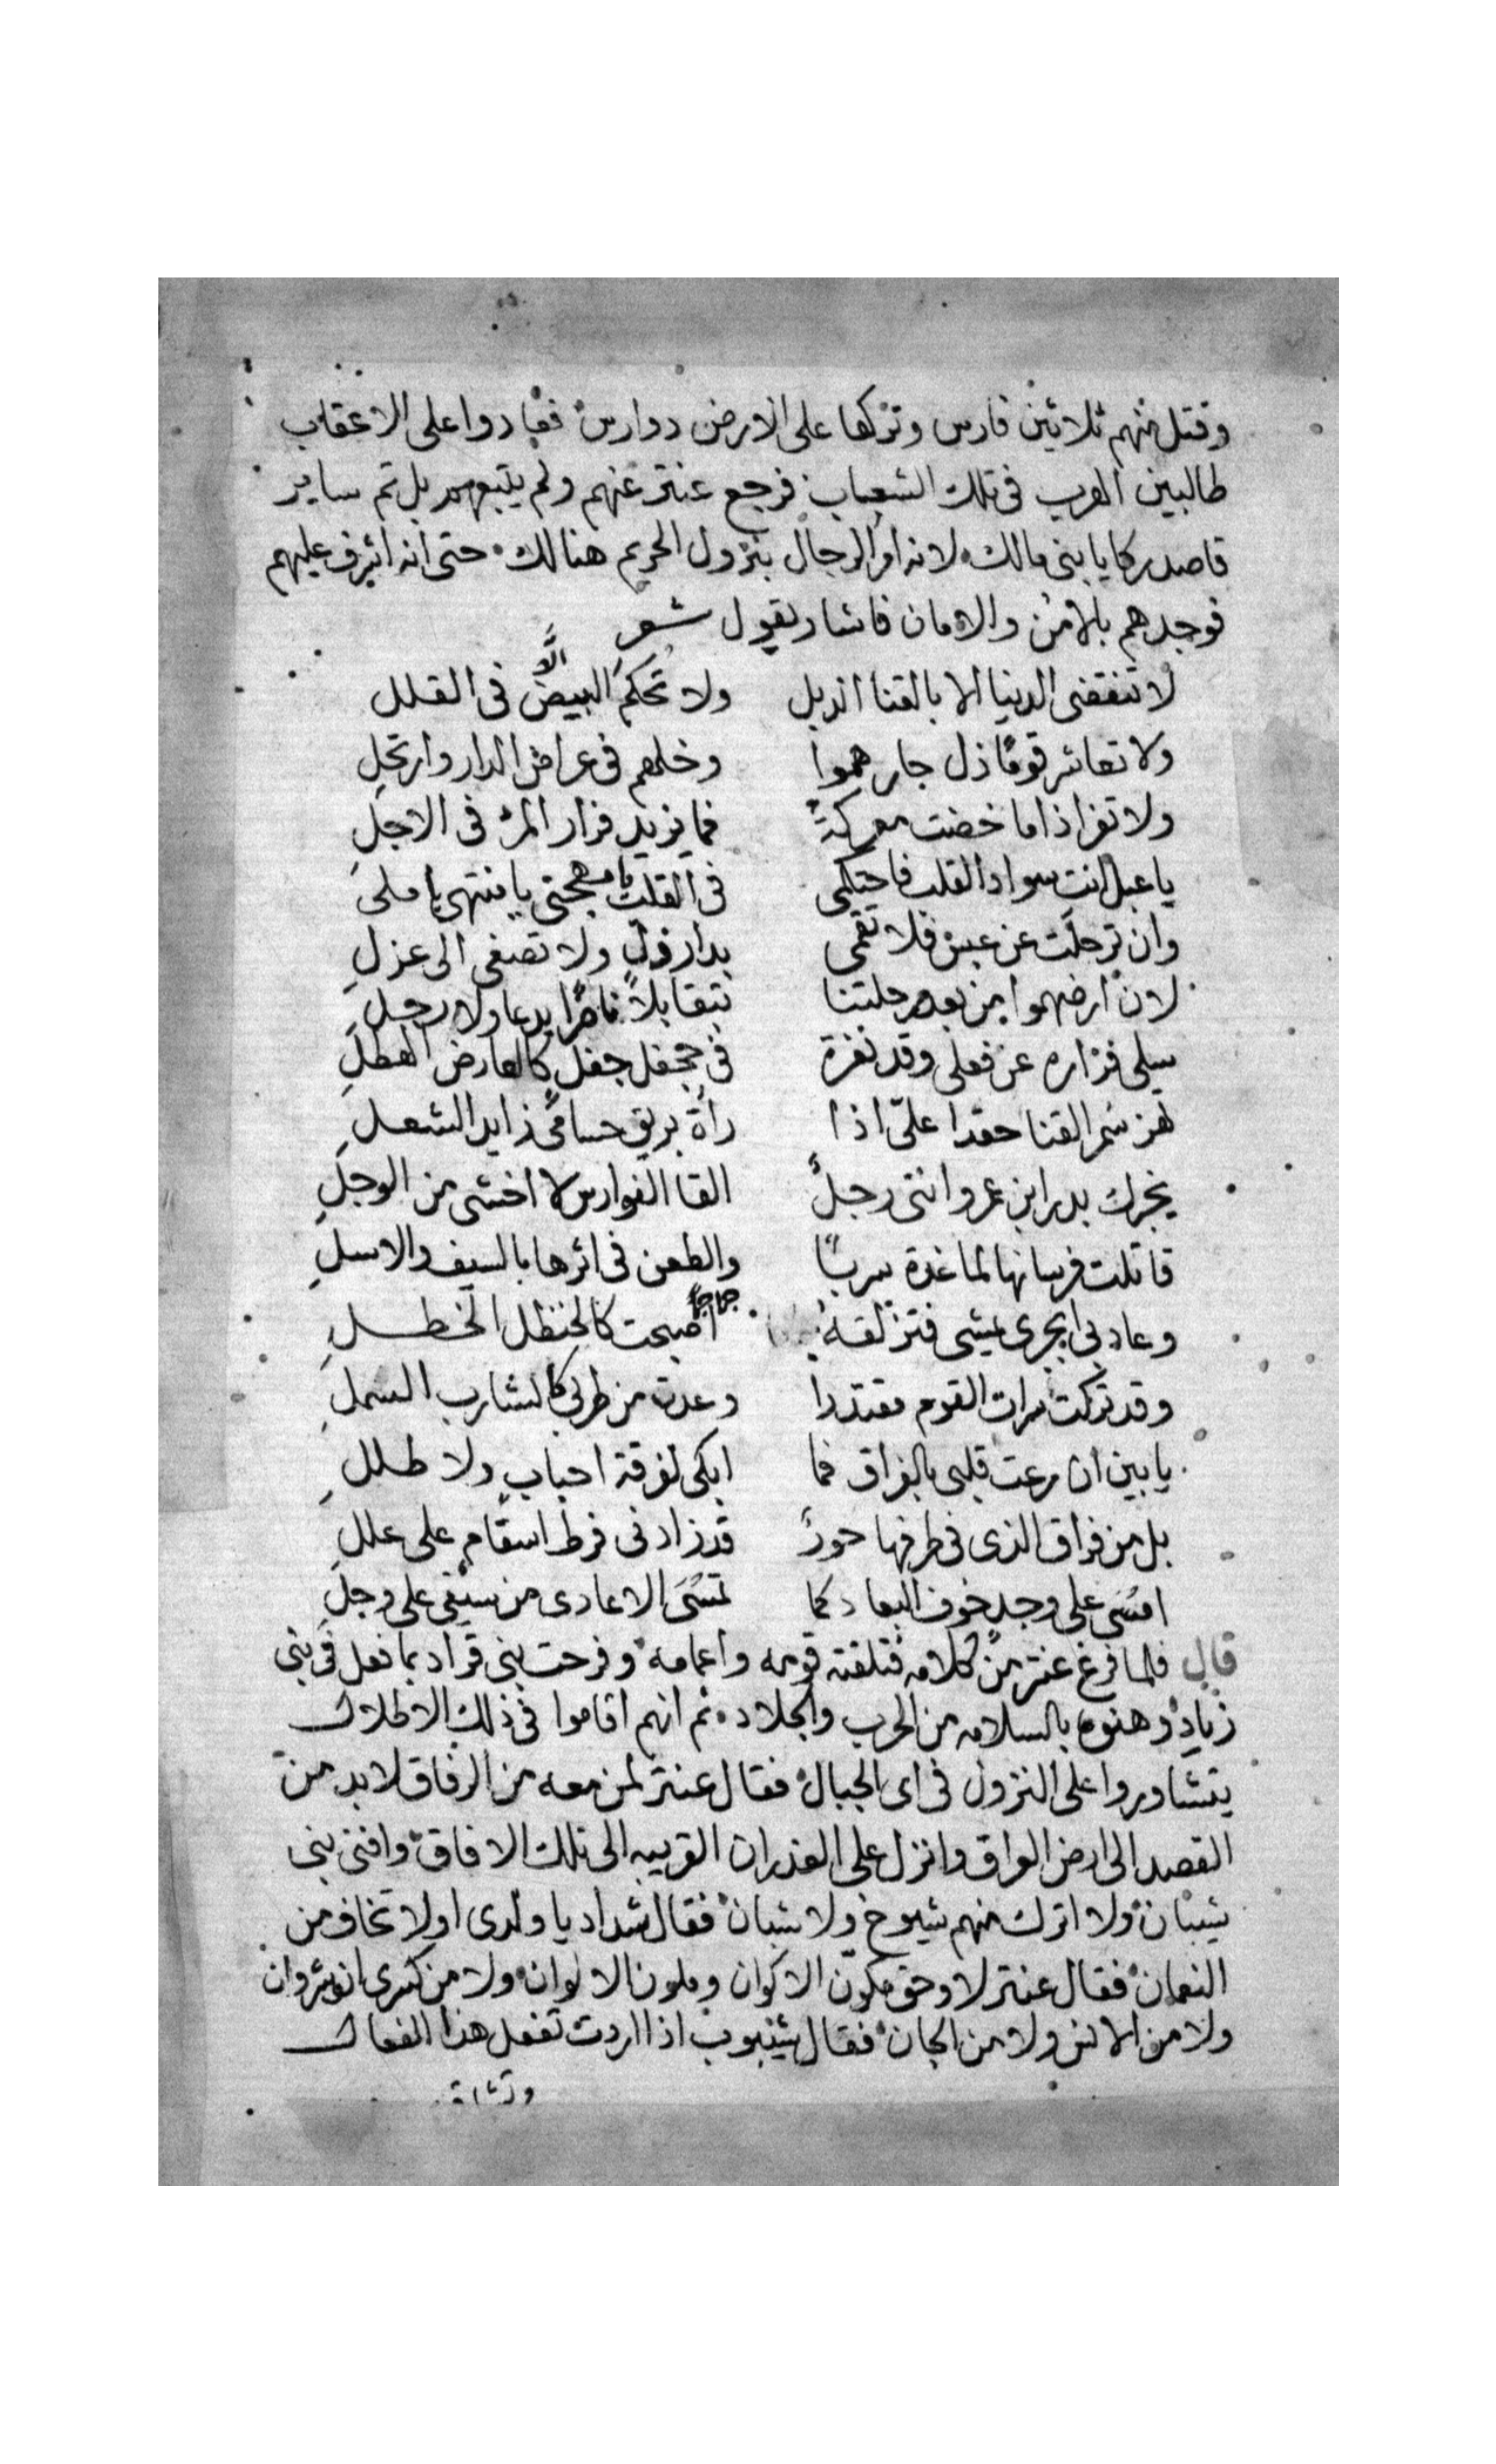 وقتل منهم ثلاثين فارس وتركها على الارض دوارس فعادوا على الاعقاب
طالبين الهرب فى تلك الشعاب فرجع عنتر عنهم ولم يتبعهم بل تم ساير
قاصد ركايا بنى مالك لانه امر الرجال بنزول الحريم هنالك حتى انه اشرف عليهم
فوجدهم بالامن والامان فاشار يقول شعر
لا تنقضى الدنيا الا بالقنا الذبل ولا تحكم البيض الّا فى القلل
ولا تعاشر قومًا ذل جارهموا وخلهم فى عراض الدار وارتحلِ
ولا تفر اذا ما خضت معركةً فما يزيد فرار المرء فى الاجلِ
يا عبل انت سواد القلب فاحتكمى فى القلب يا مهجتى يا منتهى يا املى
وان ترحلت عن عبس فلا تقمى بدار ذل ولا تصغى الى عزلِ
لان ارضهموا من بعد رحلتنا تبقا بلا ناصرًا يدعا ولا رجلِ
سلى فزاره عن فعلى وقد نفرة فى جحفل جفل كالعارض الهطلِ
تهز سُمر القنا حقدا علىّ اذا راة بريق حسامى زايد الشعلِ
يخبرك بدر ابن عمر وانتى رجلً القا الفوارس لا اخشى من الوجلِ
قاتلت فرسانها لما غدة سربًا والطعن فى اثرها بالسيف والاسلِ
وعاد بى ابجرى يمشى فتزلقهُ جماجمًا اصبحت كالحنظل الخطلِ
وقد تركت سرات القوم مقتدرا وعدت من طربى كالشارب السملِ
يا بين ان رعت قلبى بالفراق فما ابكى لفرقة احباب ولا طللِ
بل من فراق الذى فى طرفها حورً قد زادنى فرط اسقام على عللِ
امسى على وجل خوف البعاد كما تمسى الاعادى من سيفى على وجلِ
قال فلما فرغ عنتر من كلامه فتلقته قومه واعمامه وفرحت بنى قراد بما فعل فى بنى
زياد وهنوه بالسلامه من الحرب والجلاد ثم انهم اقاموا فى ذلك الاطلال
يتشاوروا على النزول فى اى الجبال فقال عنتر لمن معه من الرفاق لا بد من
القصد الى ارض العراق وانزل على الغدران القريبه الى تلك الافاق وافنى بنى
شيبان ولا اترك منهم شيوخ ولا شبان فقال شداد يا ولدى اولا تخاف من
النعمان فقال عنتر لا وحق مكوّن الاكوان وملون الالوان ولا من كسرى انوشروان
ولا من الانس ولا من الجان فقال شيبوب اذا اردت تفعل هذا الفعال